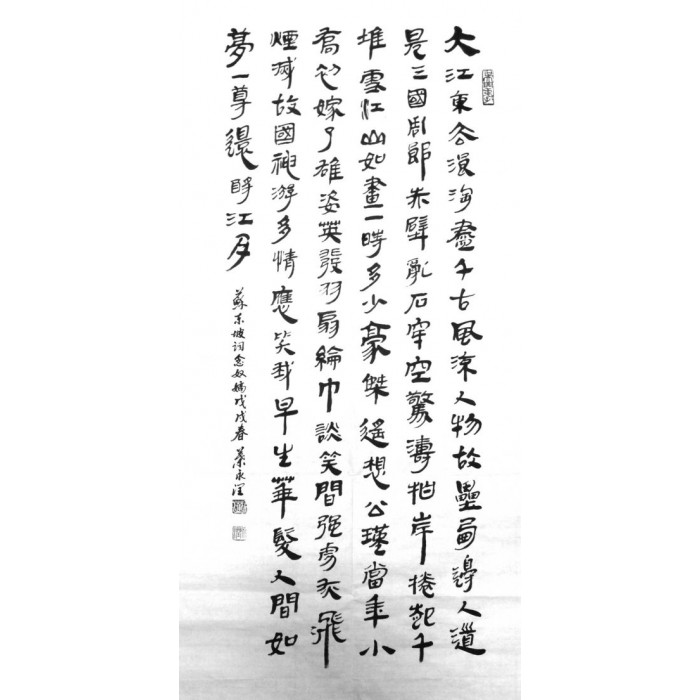 大江東去浪淘盡千古風流人物故壘西邊人道
是三國周郎赤壁亂石穿空驚濤拍岸捲起千
堆雪江山如畫一時多少豪傑遙想公瑾當年小
喬初嫁了雄姿英發羽扇綸巾談笑間强虜灰飛
煙滅故國神游多情應笑我早生華髮人間如
夢一尊還酹江月
蘇东坡词念奴嬌戊戌春